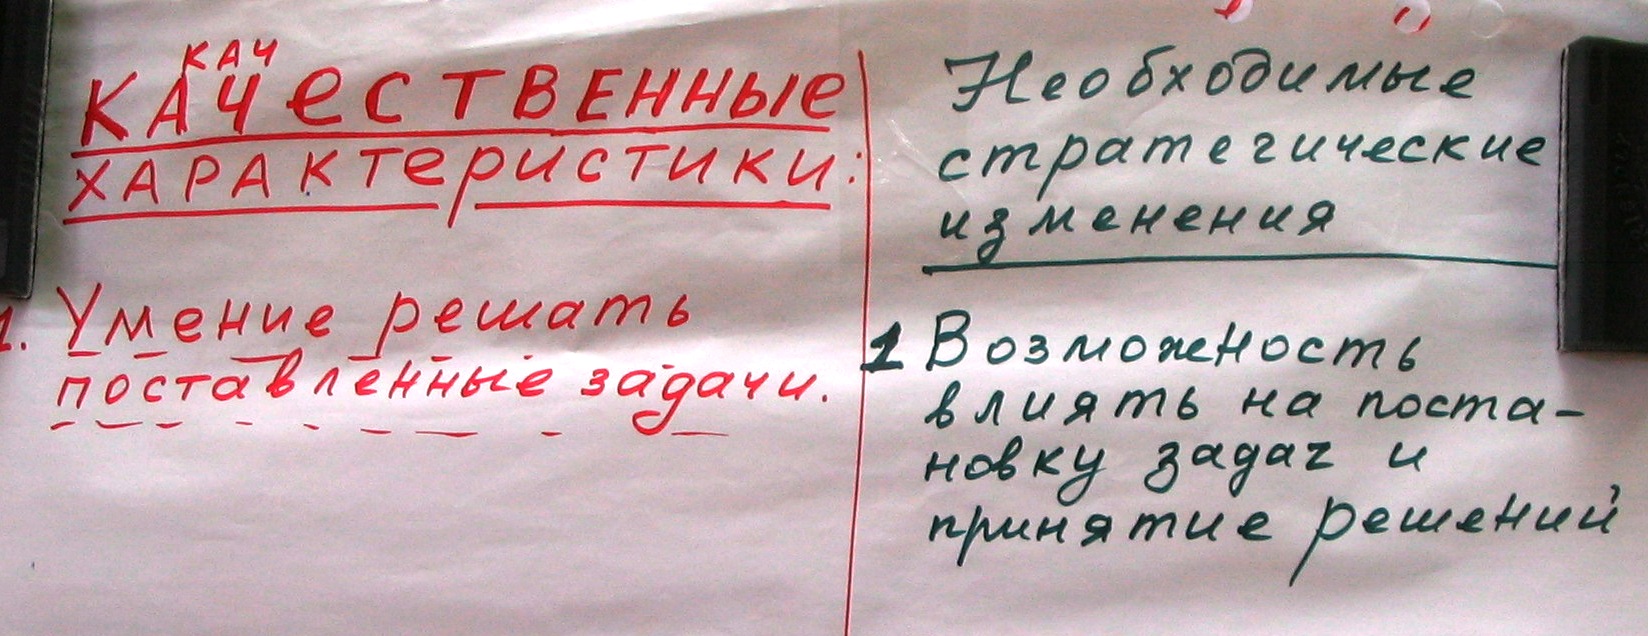 КАЧ
КАЧеСТВЕННЫе
ХАРАКТеРИСТИКИ:
1. Умение решать
поставленные задачи.
Необходимые
стратегические
изменения
1 Возможность
влиять на поста-
новку задач и
принятие решений